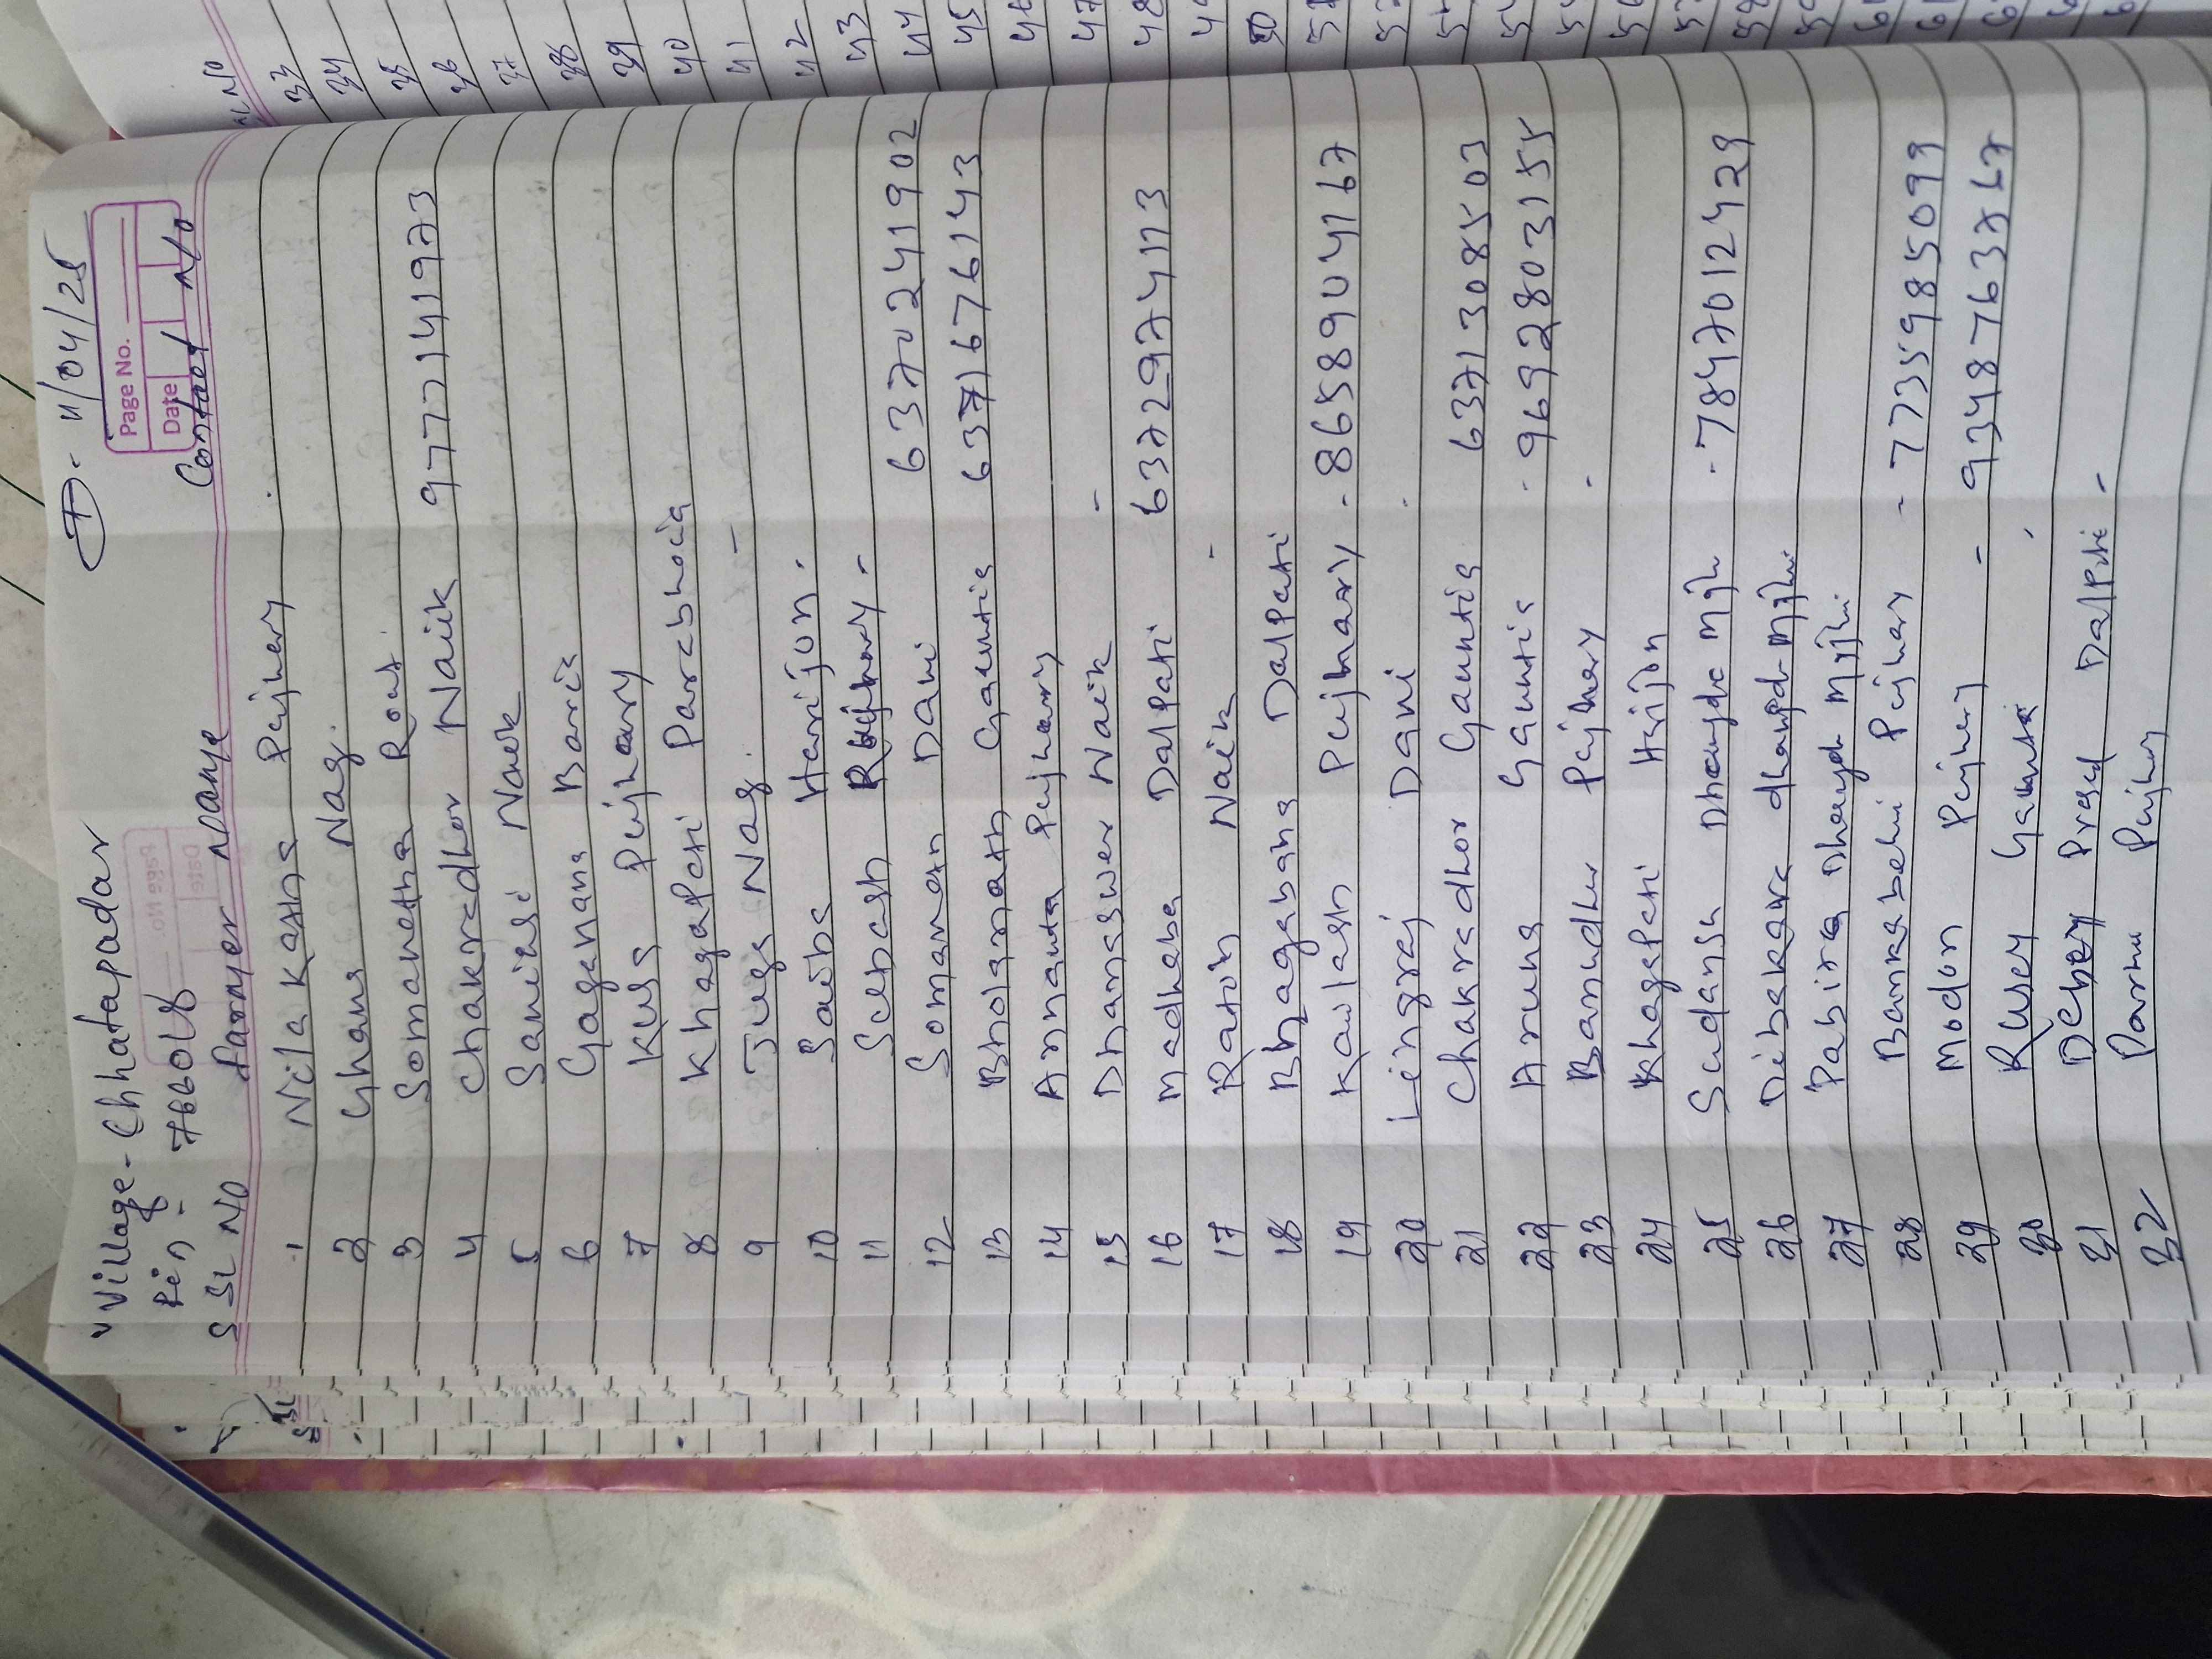 Village - Chhatapadar D - 11/04/25
Pin - 766018
Page No.
Date
S SL NO farmer Name Contact No
1 Nila Kantha Pujhery
2 Ghana Nag
3 Somanatha Rout
4 Chakradhar Naik 9777141973
5 Naek
6 Gaganana Baria
7 Kus Pujheary
8 KhagaPati Parabhoia
9 Juga Nag
10 Saiba Harijon
11 Subash
12 Somanath Dani 6370241902
13 Bholanath Gauntia 6371676143
14 Annanta Pujheary
15 Dhamaswer Naik -
16 Madhaba DalPati 6372974113
17 Ratan Naik -
18 Bhagabana DalPati
19 Kailash Pujhaary - 8658904167
20 Lingraj Dani
21 Chakradhor Gauntia 6371308503
22 Aruna Gauntia - 9692803155
23 Bamudhar Pujhary -
24 KhagaPati Harijon
25 Sudansu Dhangda Mjhi - 7847012429
26 Dibakara dhangda Mjhi
27 Pabitra Dhangda Mjjhi
28 Bankabehi Pujhary - 7735985099
29 Modon Pujhery - 9348763767
30 Rusey Gauntia
31 Prasad DalPati -
32 Pujhary
SL NO
33
34
35
36
37
38
39
40
41
42
43
44
45
46
47
48
50